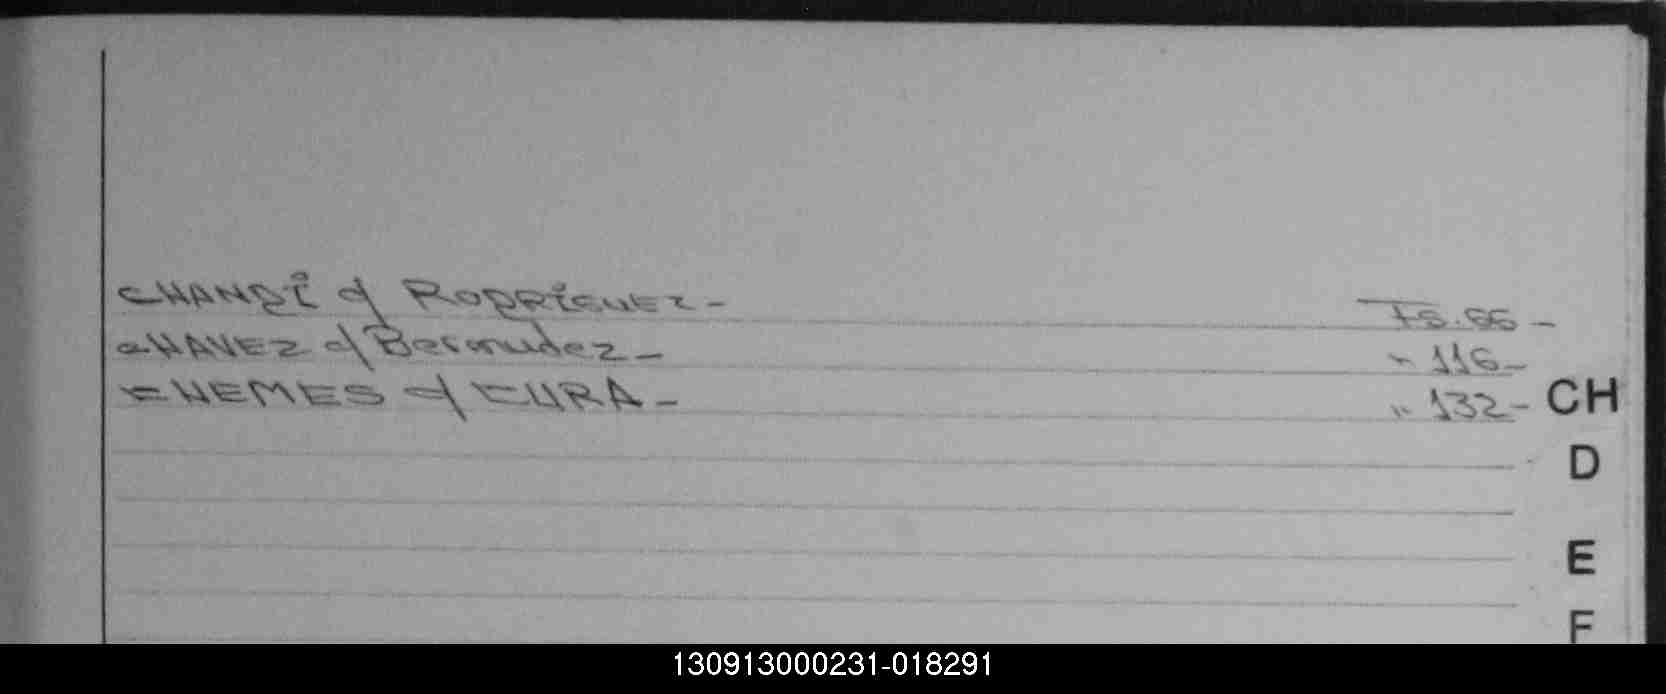 CHANDÍ c/ RODRÍGUEZ - Fs. 66 -
CHAVEZ c/ Bermudez - " 116 -
CHEMES c/ CURA - " 132 -
CH
D
E
F
130913000231-018291